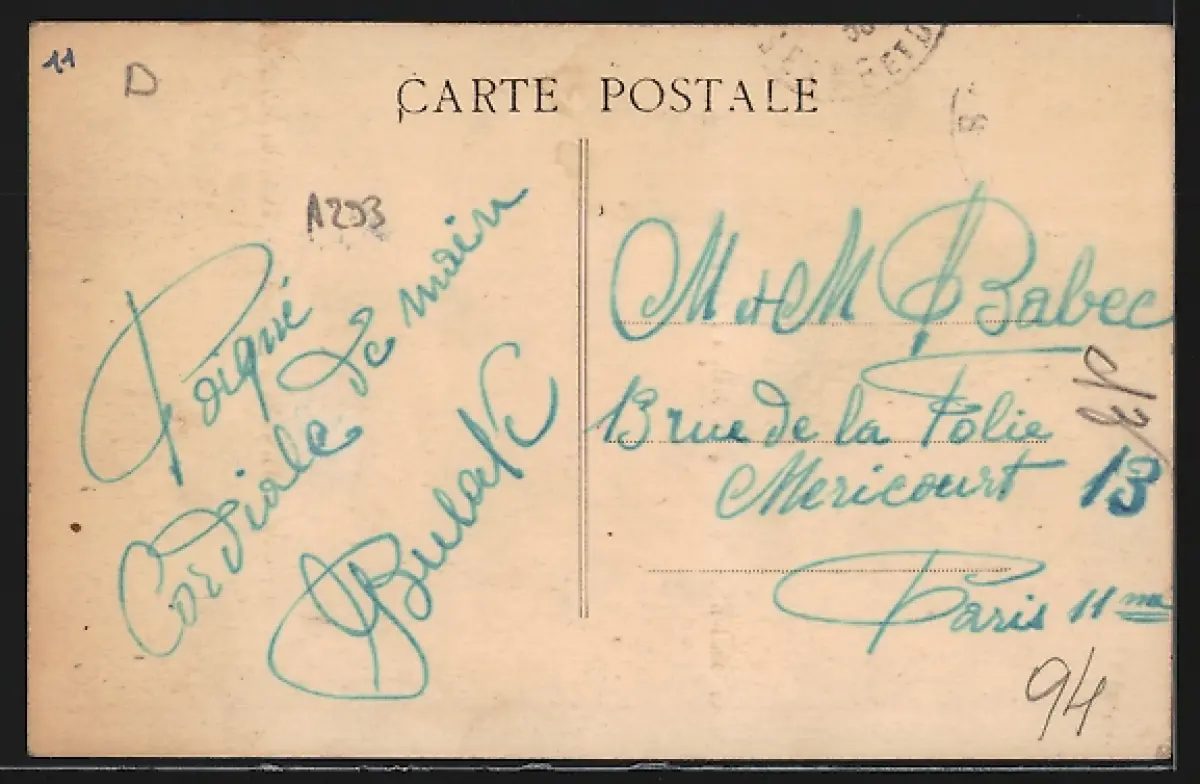 11
D
CARTE POSTALE
A293
Poigné
de main
Cordiale
M et M Babec
13 rue de la Folie
Mericourt 13
Paris 11me
94